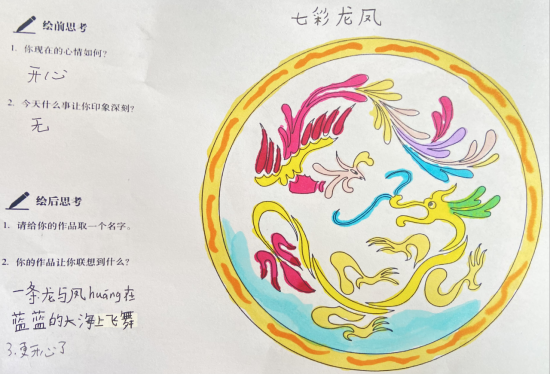 七彩龙凤
绘前思考
1. 你现在的心情如何?
开心
2. 今天什么事让你印象深刻?
无
绘后思考
1. 请给你的作品取一个名字。
2. 你的作品让你联想到什么?
一条龙与凤huáng在
蓝蓝的大海上飞舞
3.更开心了